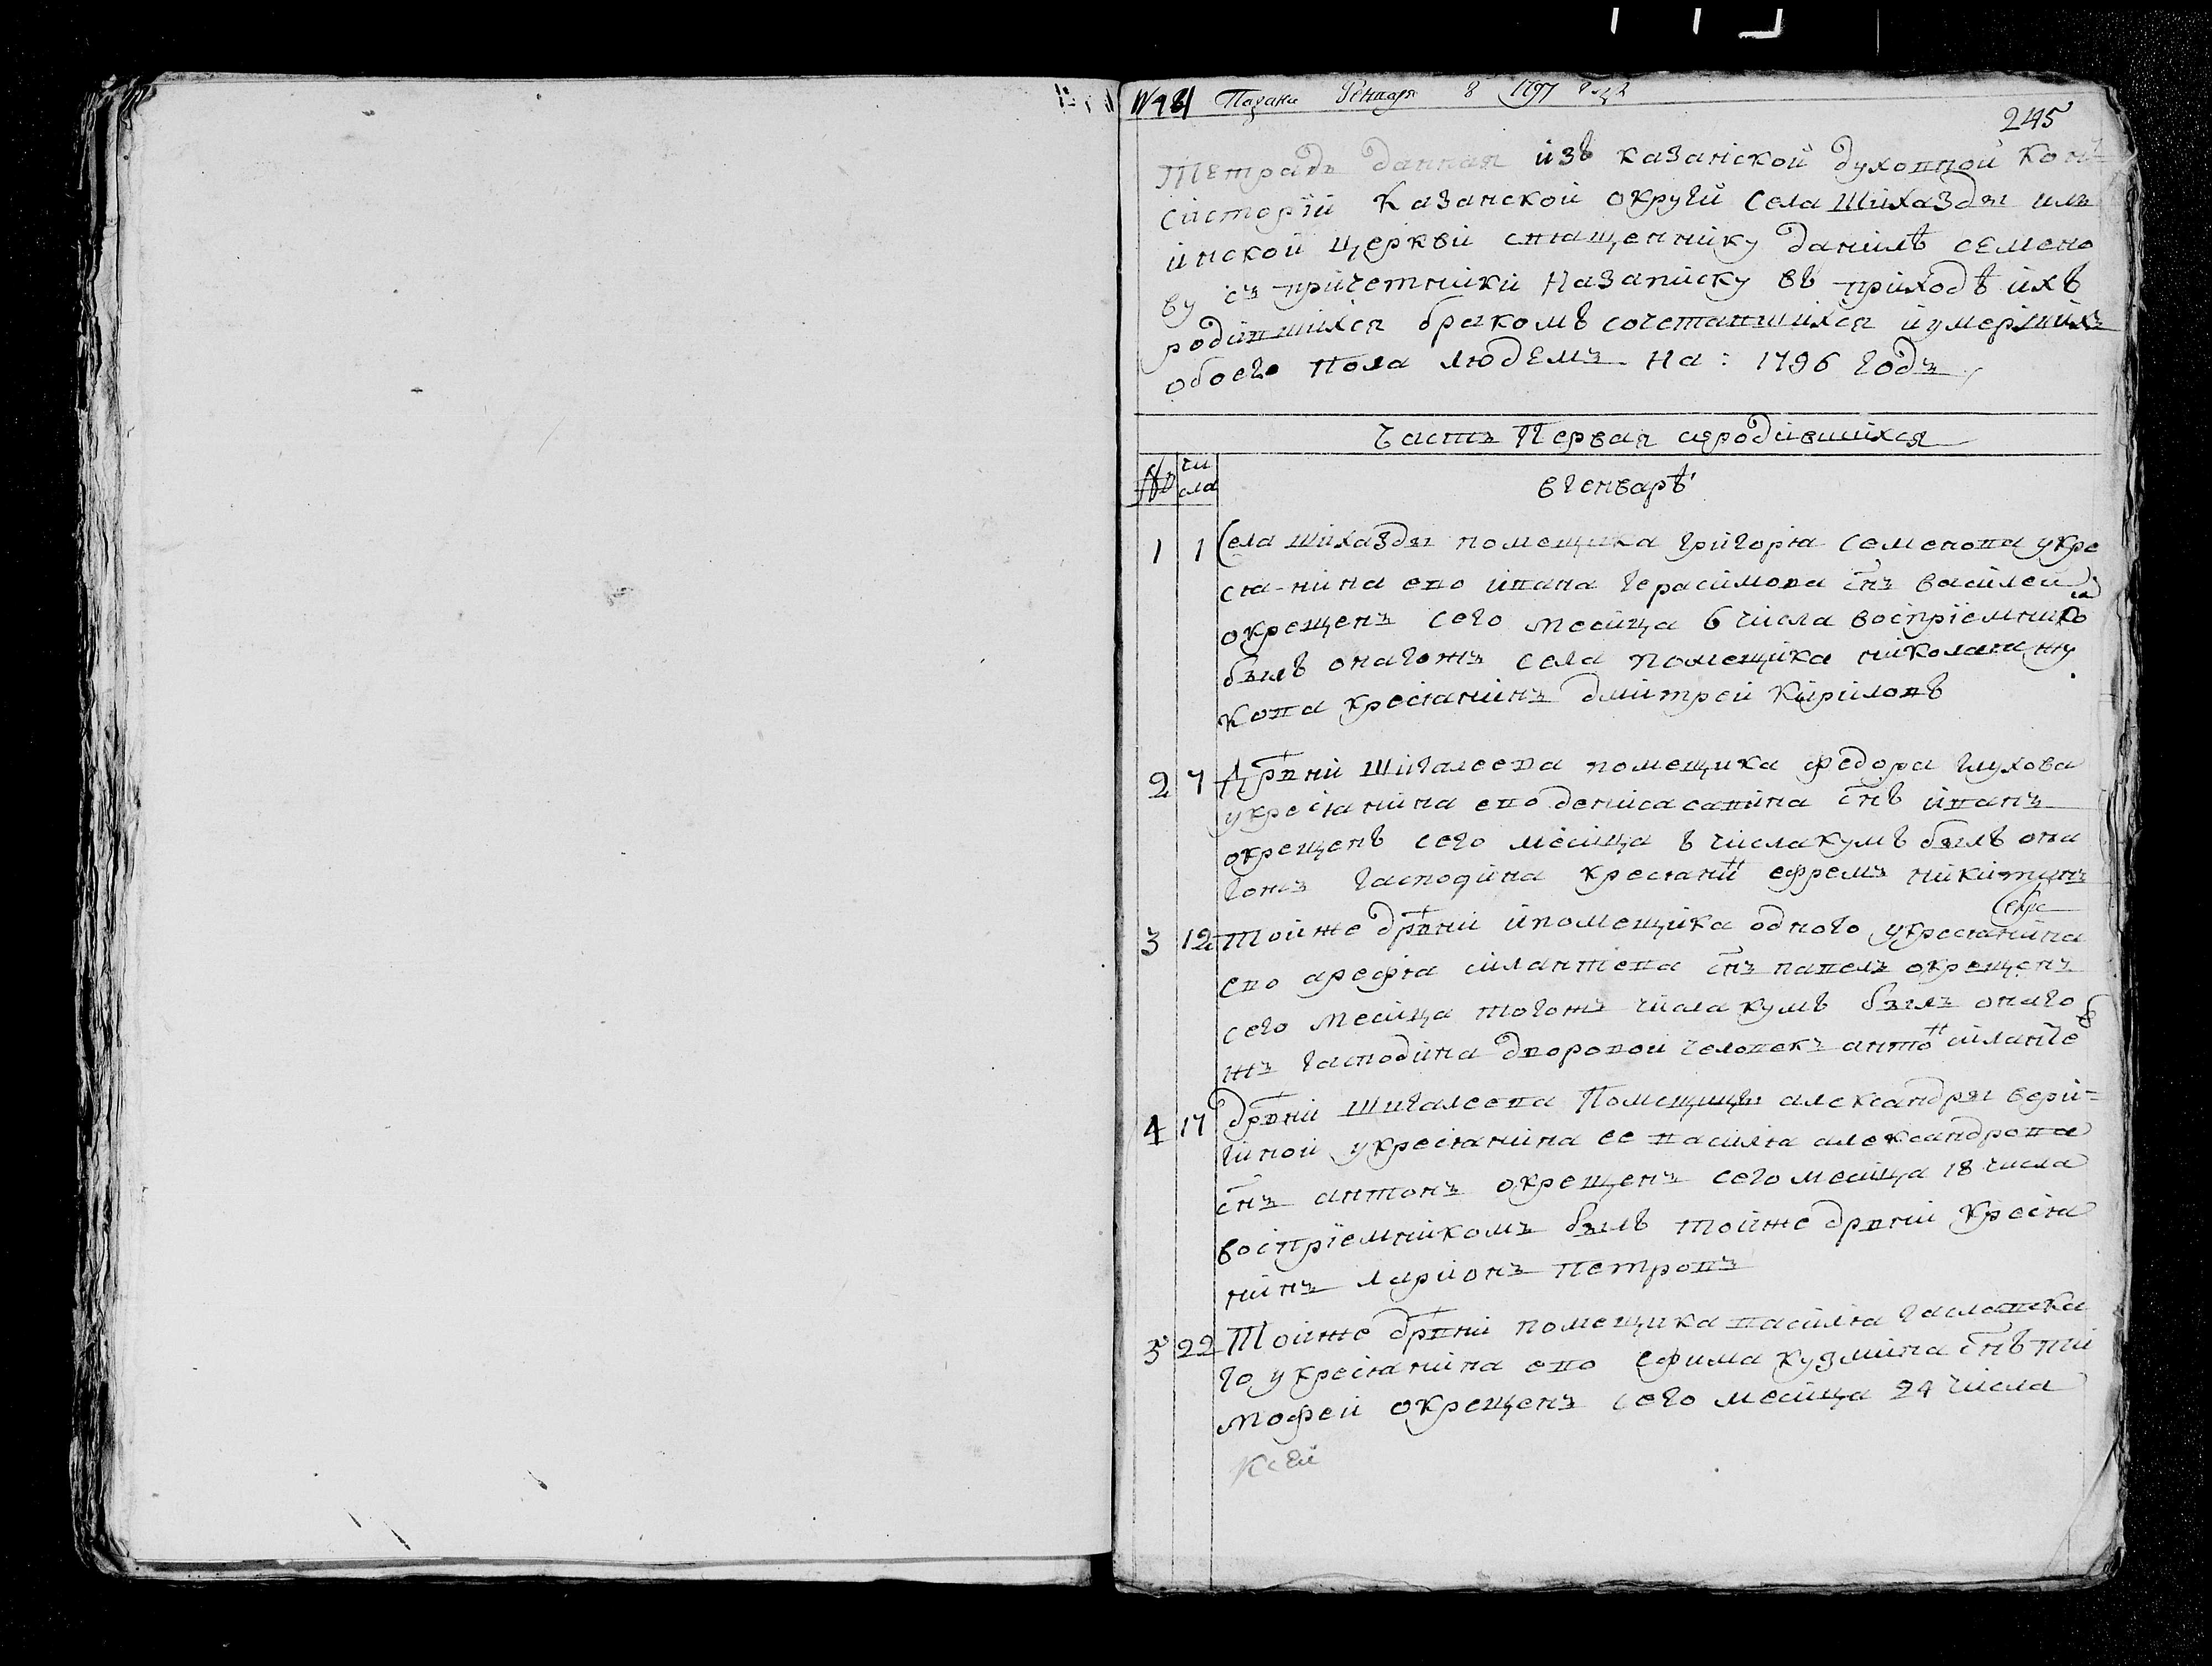 № 481 Подана Генваря 8 1797 года
245
Тетрадь данная изъ казанской духовной кон-
систорiи Казанской округи села Шихазды иль
инской церкви священнику данилѣ семено
ву съ причетники На записку въ приходѣ ихъ
родившихся бракомъ сочетавшихся и умершихъ
обоего пола людемъ на: 1796 годъ
Часть Первая о родившихся
№ чи
сла
в генварѣ
1 1 Села шихазды помещика григорья семенова укре
стьянина ево ивана герасимова снъ василей
окрещенъ сего месица 6 числа воспрiемнико
былъ онагожъ села помещика николая жу
кова крестьянинъ дмитрей кириловъ
2 7 Дрвни шигалеева помещика федора глухова
укрестьянина ево дениса савина снъ иванъ
окрещенъ сего месица 8 числа кумъ былъ она
гожъ гасподина крестьнинъ ефремъ никитинъ
3 12 Тойже дрвни ипомещика одного укрестьянина
ево арефья силантева снъ павелъ окрещенъ
сего месица тогожъ числа кумъ былъ онаго
жъ гасподина дворовой человекъ антонъ силанте
в
4 17 дрвни шигалеева Помещицы александры вери-
гиной укрестьянина ее василья александрова
снъ антонъ окрещенъ сего месица 18 числа
воспрiемникомъ былъ тойже дрвни крестья
нинъ ларионъ петровъ
5 22 Тойже дрвни помещика василья гасловска
го укрестьянина ево ефима кузмина снъ ти
мофей окрещенъ сего месица 24 числа
к сей